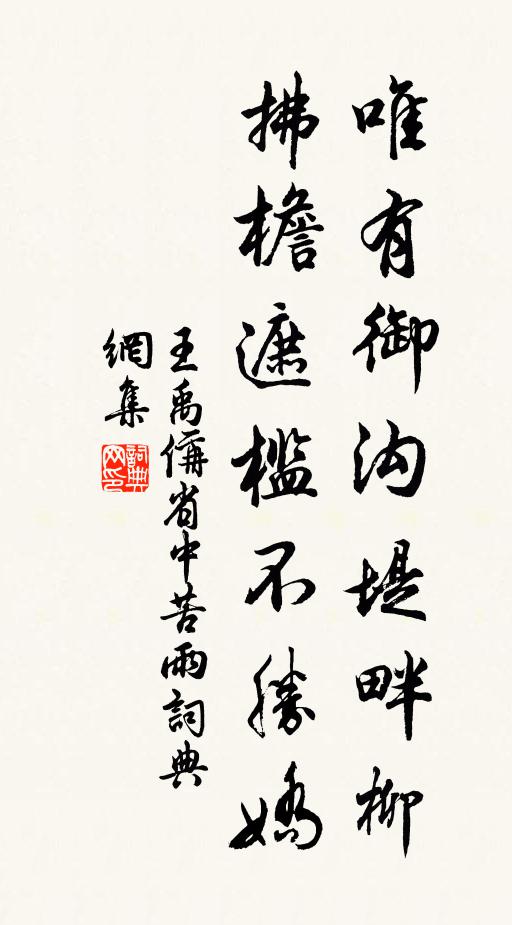 唯有御沟堤畔柳
拂檐遮槛不勝嬌
王禹偁省中苦雨詞典
網集
詞典
网印